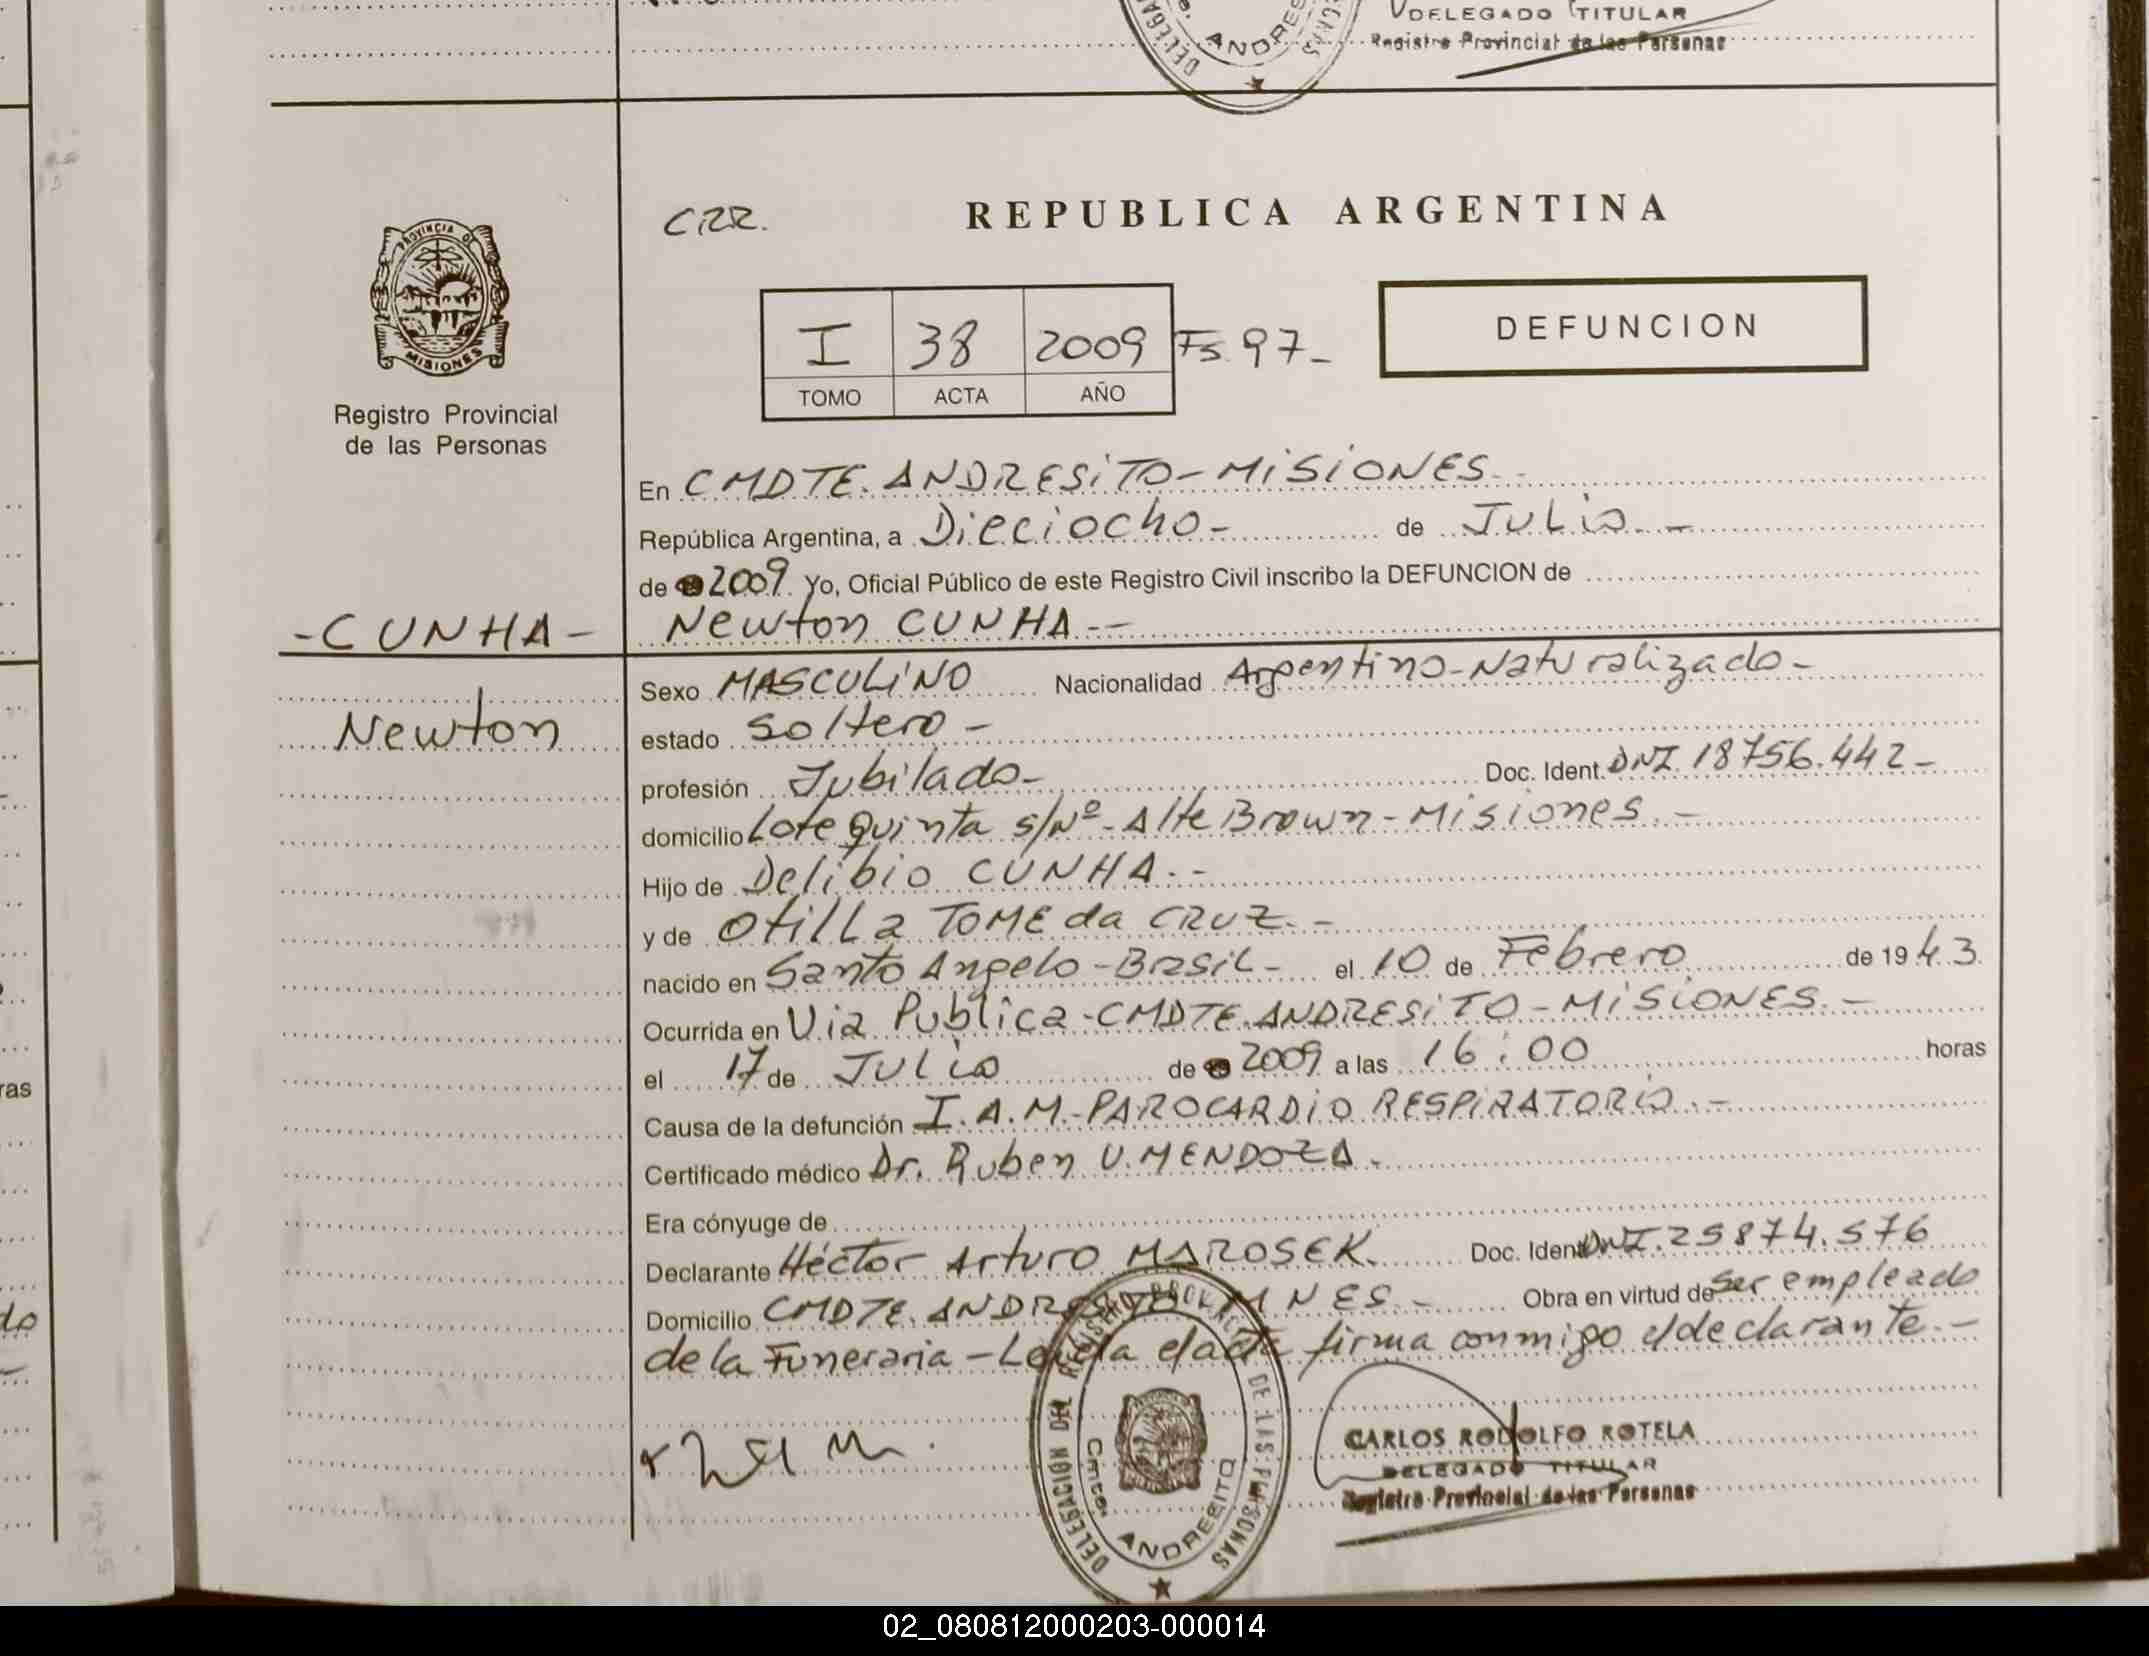 DELEGADO TITULAR
Registro Provincial de las Personas
CRR.
REPUBLICA ARGENTINA
PROVINCIA DE
MISIONES
I 38 2009 Fs. 97-
TOMO ACTA AÑO
DEFUNCION
Registro Provincial
de las Personas
En CMDTE. ANDRESiTO-MiSiONES.-
República Argentina, a Dieciocho- de Julio.-
de 2009. Yo, Oficial Público de este Registro Civil inscribo la DEFUNCION de
-CUNHA- Newton CUNHA.--
Sexo MASCULiNO Nacionalidad Argentino-Naturalizado-
Newton
estado Soltero-
profesión Jubilado- Doc. Ident. DNI 18756.442-
domicilio Lote quinta s/Nº-Alte Brown-Misiones.-
Hijo de Delibio CUNHA.-
y de OtiLLa TOME da CRUZ.-
nacido en Santo Angelo-BrasiL- el 10 de Febrero de 1943.
Ocurrida en Via Publica-CMDTE.ANDRESiTO-MiSiONES.-
el 17 de JULio de 2009 a las 16:00 horas
Causa de la defunción I.A.M.-PAROCARDiO RESPiRATORiO.-
Certificado médico Dr. Ruben U.MENDOZA.
Era cónyuge de
Declarante Héctor Arturo MAROSEK. Doc. Ident DNI.25874.576
Domicilio CMDTE. ANDRESiTO MNES.- Obra en virtud de Ser empleado
de la Funeraria-Leida el acta firma conmigo el declarante.-
DELEGACION DEL REGISTRO PROVINCIAL DE LAS PERSONAS
Cmte. ANDRESITO
CARLOS RODOLFO ROTELA
DELEGADO TITULAR
Registro Provincial de las Personas
02_080812000203-000014